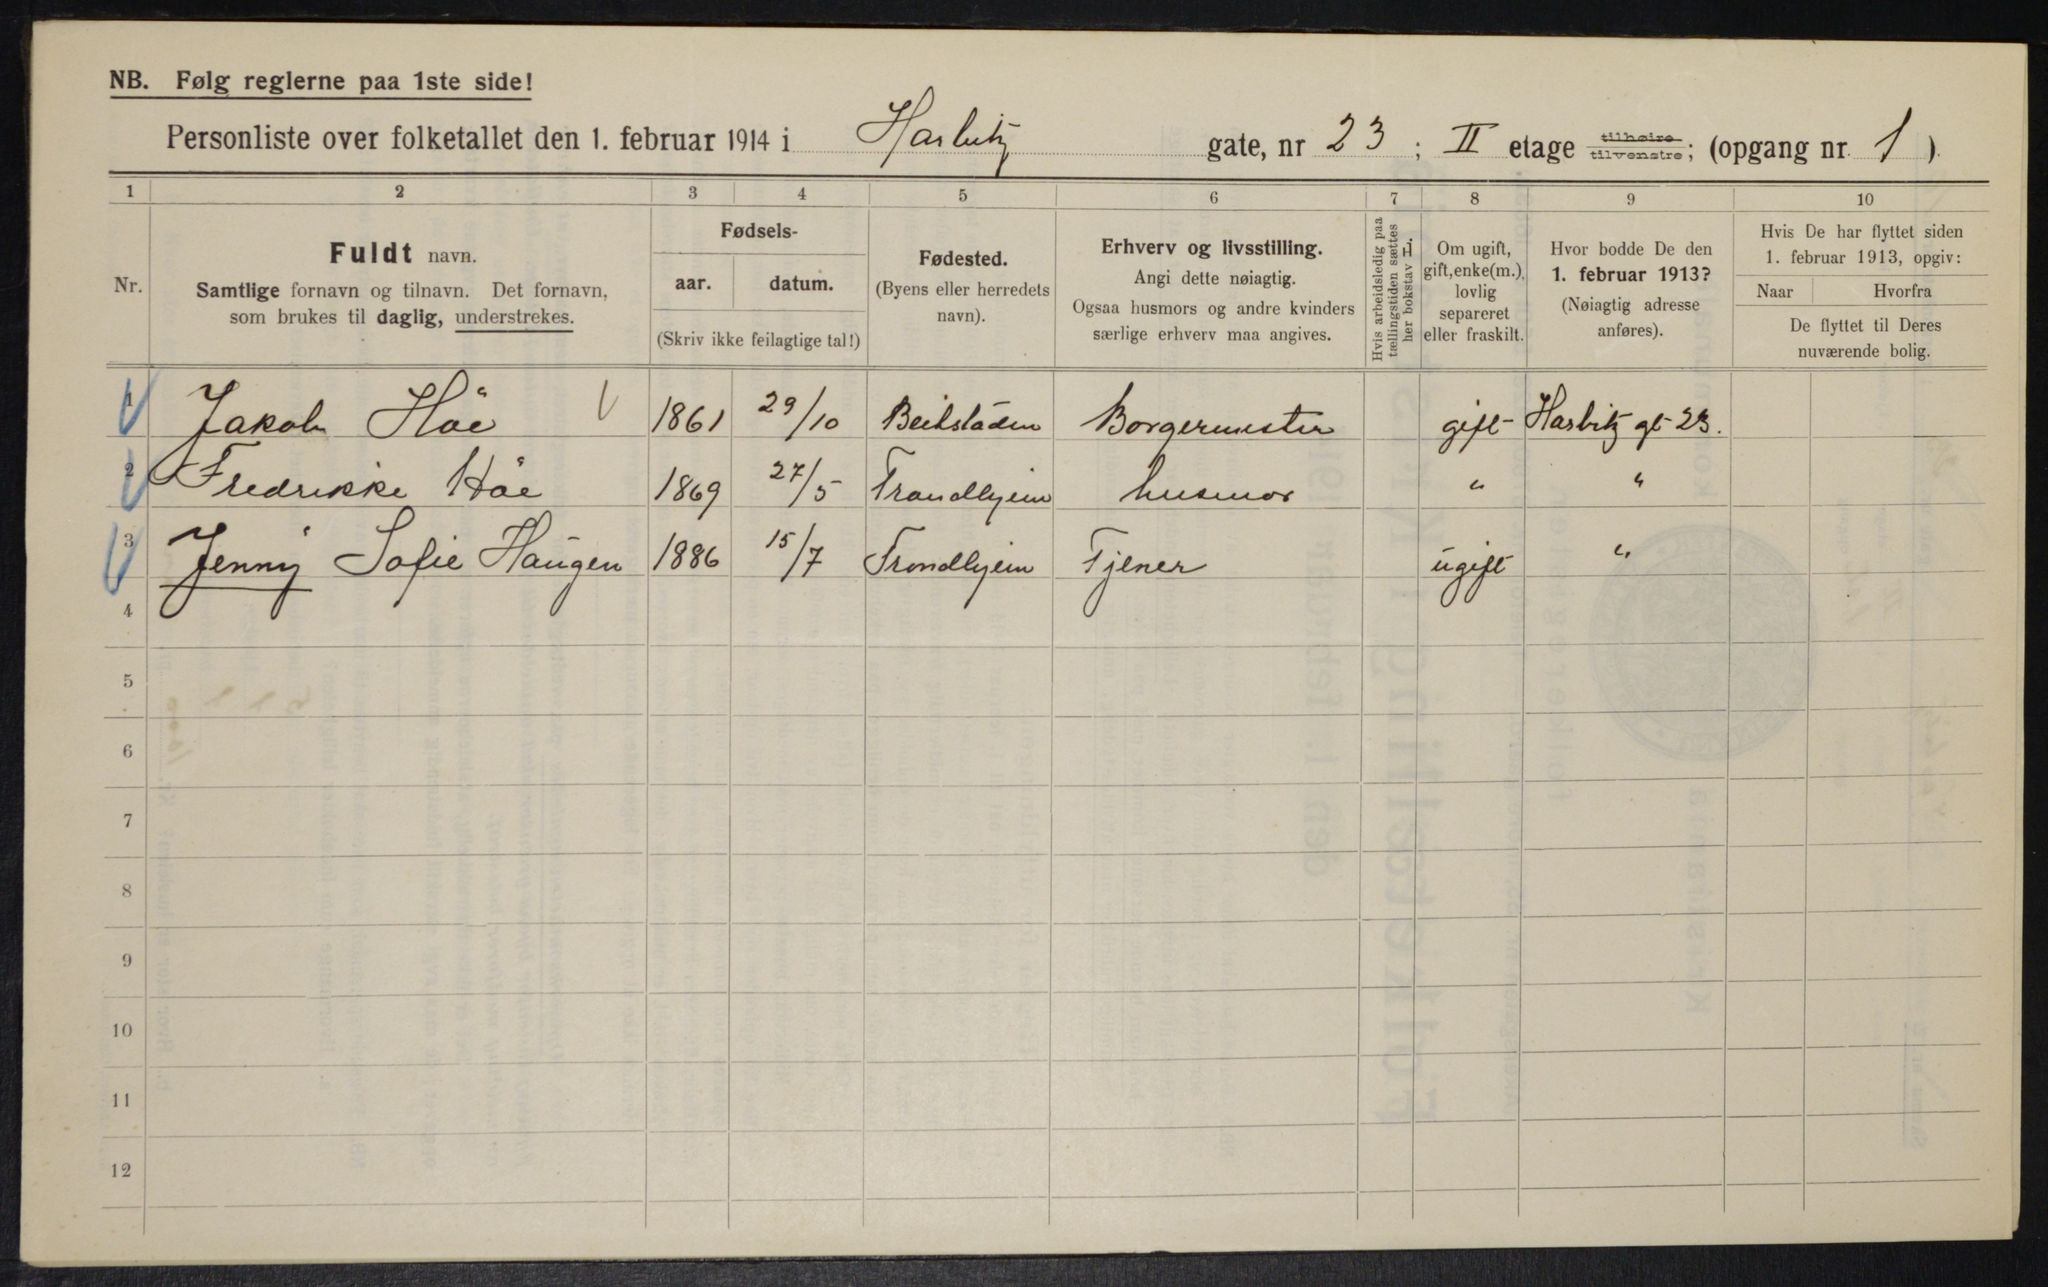 NB. Følg reglerne paa 1ste side!
Personliste over folketallet den 1. februar 1914 i Harbitz gate, nr 23; II etage tilhøire tilvenstre; (opgang nr. 1).
1 2 3 4 5 6 7 8 9 10
Nr.
Fuldt navn.
Samtlige fornavn og tilnavn. Det fornavn,
som brukes til daglig, understrekes.
Fødsels-
aar. datum.
(Skriv ikke feilagtige tal!)
Fødested.
(Byens eller herredets
navn).
Erhverv og livsstilling.
Angi dette nøiagtig.
Ogsaa husmors og andre kvinders
særlige erhverv maa angives.
Hvis arbeidsledig paa
tællingstiden sættes
her bokstav L
Om ugift,
gift, enke(m.),
lovlig
separeret
eller fraskilt.
Hvor bodde De den
1. februar 1913?
(Nøiagtig adresse
anføres).
Hvis De har flyttet siden
1. februar 1913, opgiv:
Naar Hvorfra
De flyttet til Deres
nuværende bolig.
1 Jakob Höe 1861 29/10 Beitstaden Borgermester gift Harbitz gt 23.
2 Fredrikke Höe 1869 27/5 Trondhjem husmor " "
3 Jenny Sofie Haugen 1886 15/7 Trondhjem Tjener ugift "
4
5
6
7
8
9
10
11
12